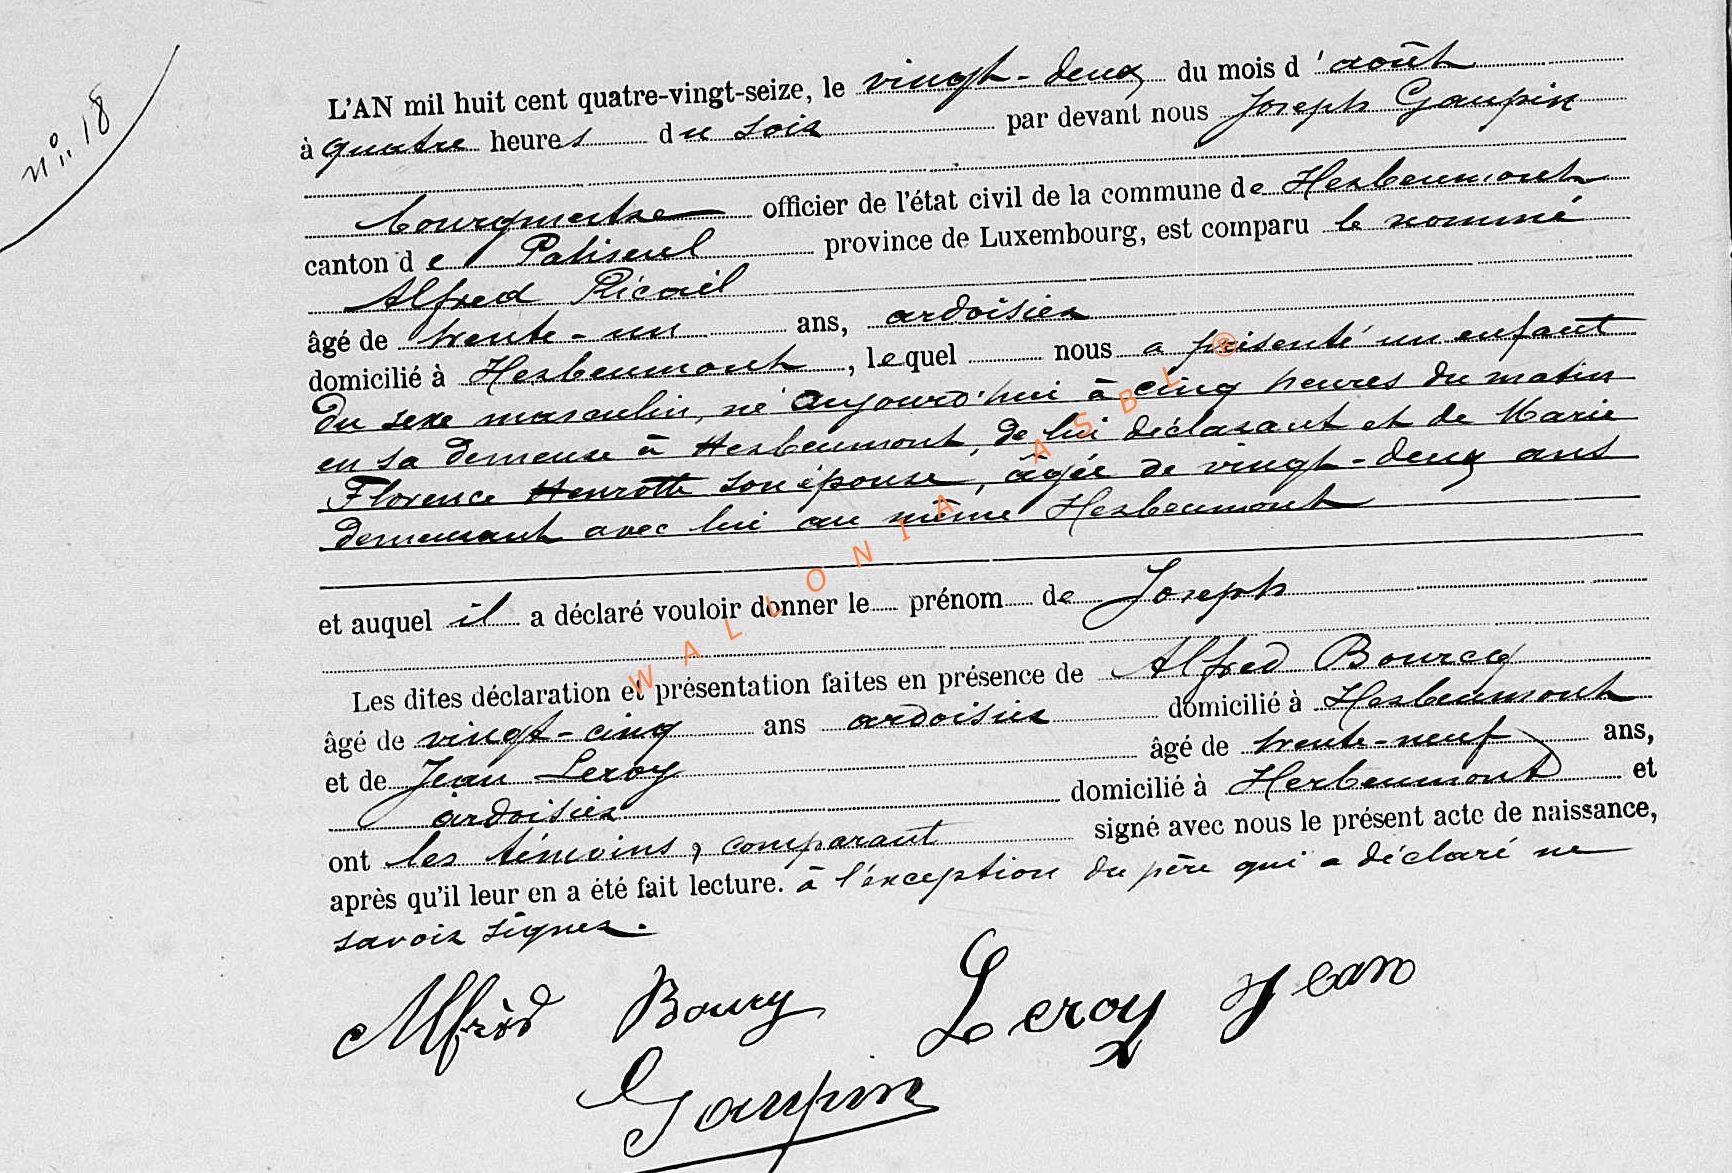 n° 18
L'AN mil huit cent quatre-vingt-seize, le vingt-deux du mois d'août
à quatre heures du soir par devant nous Joseph Gaupin
bourgmestre officier de l'état civil de la commune de Herbeumont
canton de Paliseul province de Luxembourg, est comparu le nommé
Alfred Ricail
âgé de trente-un ans, ardoisier
domicilié à Herbeumont, lequel nous a présenté un enfant
du sexe masculin, né aujourd'hui à cinq heures du matin
en sa demeure à Herbeumont, de lui déclarant et de Marie
Florence Henrotte son épouse, âgée de vingt-deux ans
demeurant avec lui au même Herbeumont
et auquel il a déclaré vouloir donner le prénom de Joseph
Les dites déclaration et présentation faites en présence de Alfred Bourcy
âgé de vingt-cinq ans ardoisier domicilié à Herbeumont
et de Jean Leroy âgé de trente-neuf ans,
ardoisier domicilié à Herbeumont et
ont les témoins, comparant signé avec nous le présent acte de naissance,
après qu'il leur en a été fait lecture. à l'exception du père qui a déclaré ne
savoir signer.
Alfred Bourcy Leroy Jean
Gaupin
WALLONIA ASBL ®